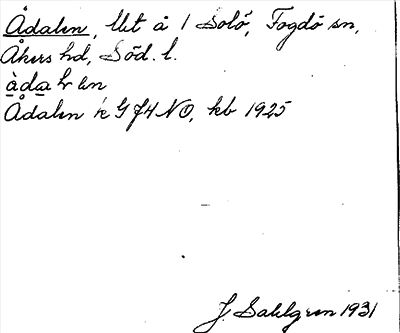 Ådalen, lht å 1 Solö, Fogdö sn,
Åkers hd, Söd. l.
àdalən
Ådalen k G J4 NO, kb 1925
J. Sahlgren 1931